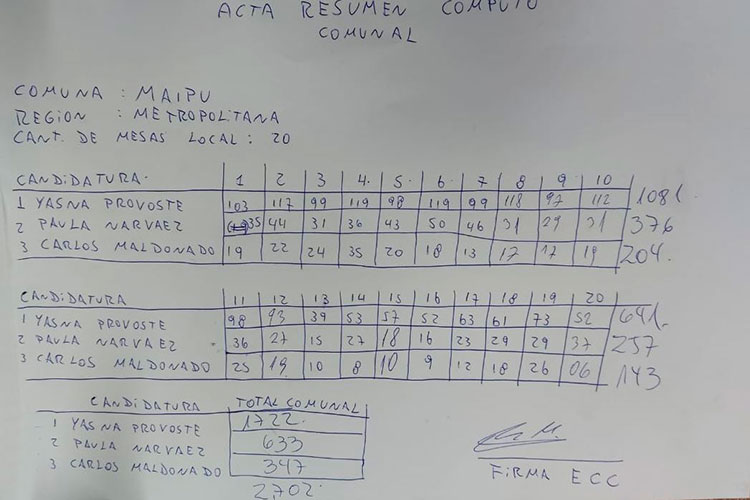 ACTA RESUMEN COMPUTO
COMUNAL
COMUNA : MAIPU
REGION : METROPOLITANA
CANT. DE MESAS LOCAL : 20
CANDIDATURA. 1 2 3 4. 5. 6. 7 8 9. 10
1 YASNA PROVOSTE 103 117 99 119 98 119 99 118 97 112 1081.
2 PAULA NARVAEZ 35 44 31 36 43 50 46 31 29 31 376
3 CARLOS MALDONADO 19 22 24 35 20 18 13 17 17 19 204.
CANDIDATURA 11 12 13 14 15 16 17 18 19 20
1 YASNA PROVOSTE 98 93 39 53 57 52 63 61 73 52 641.
2 PAULA NARVAEZ 36 27 15 27 18 16 23 29 29 37 257
3 CARLOS MALDONADO 25 19 10 8 10 9 12 18 26 06 143
CANDIDATURA TOTAL COMUNAL
1 YASNA PROVOSTE 1722.
2 PAULA NARVAEZ 633
3 CARLOS MALDONADO 347
2,702.
FIRMA ECC